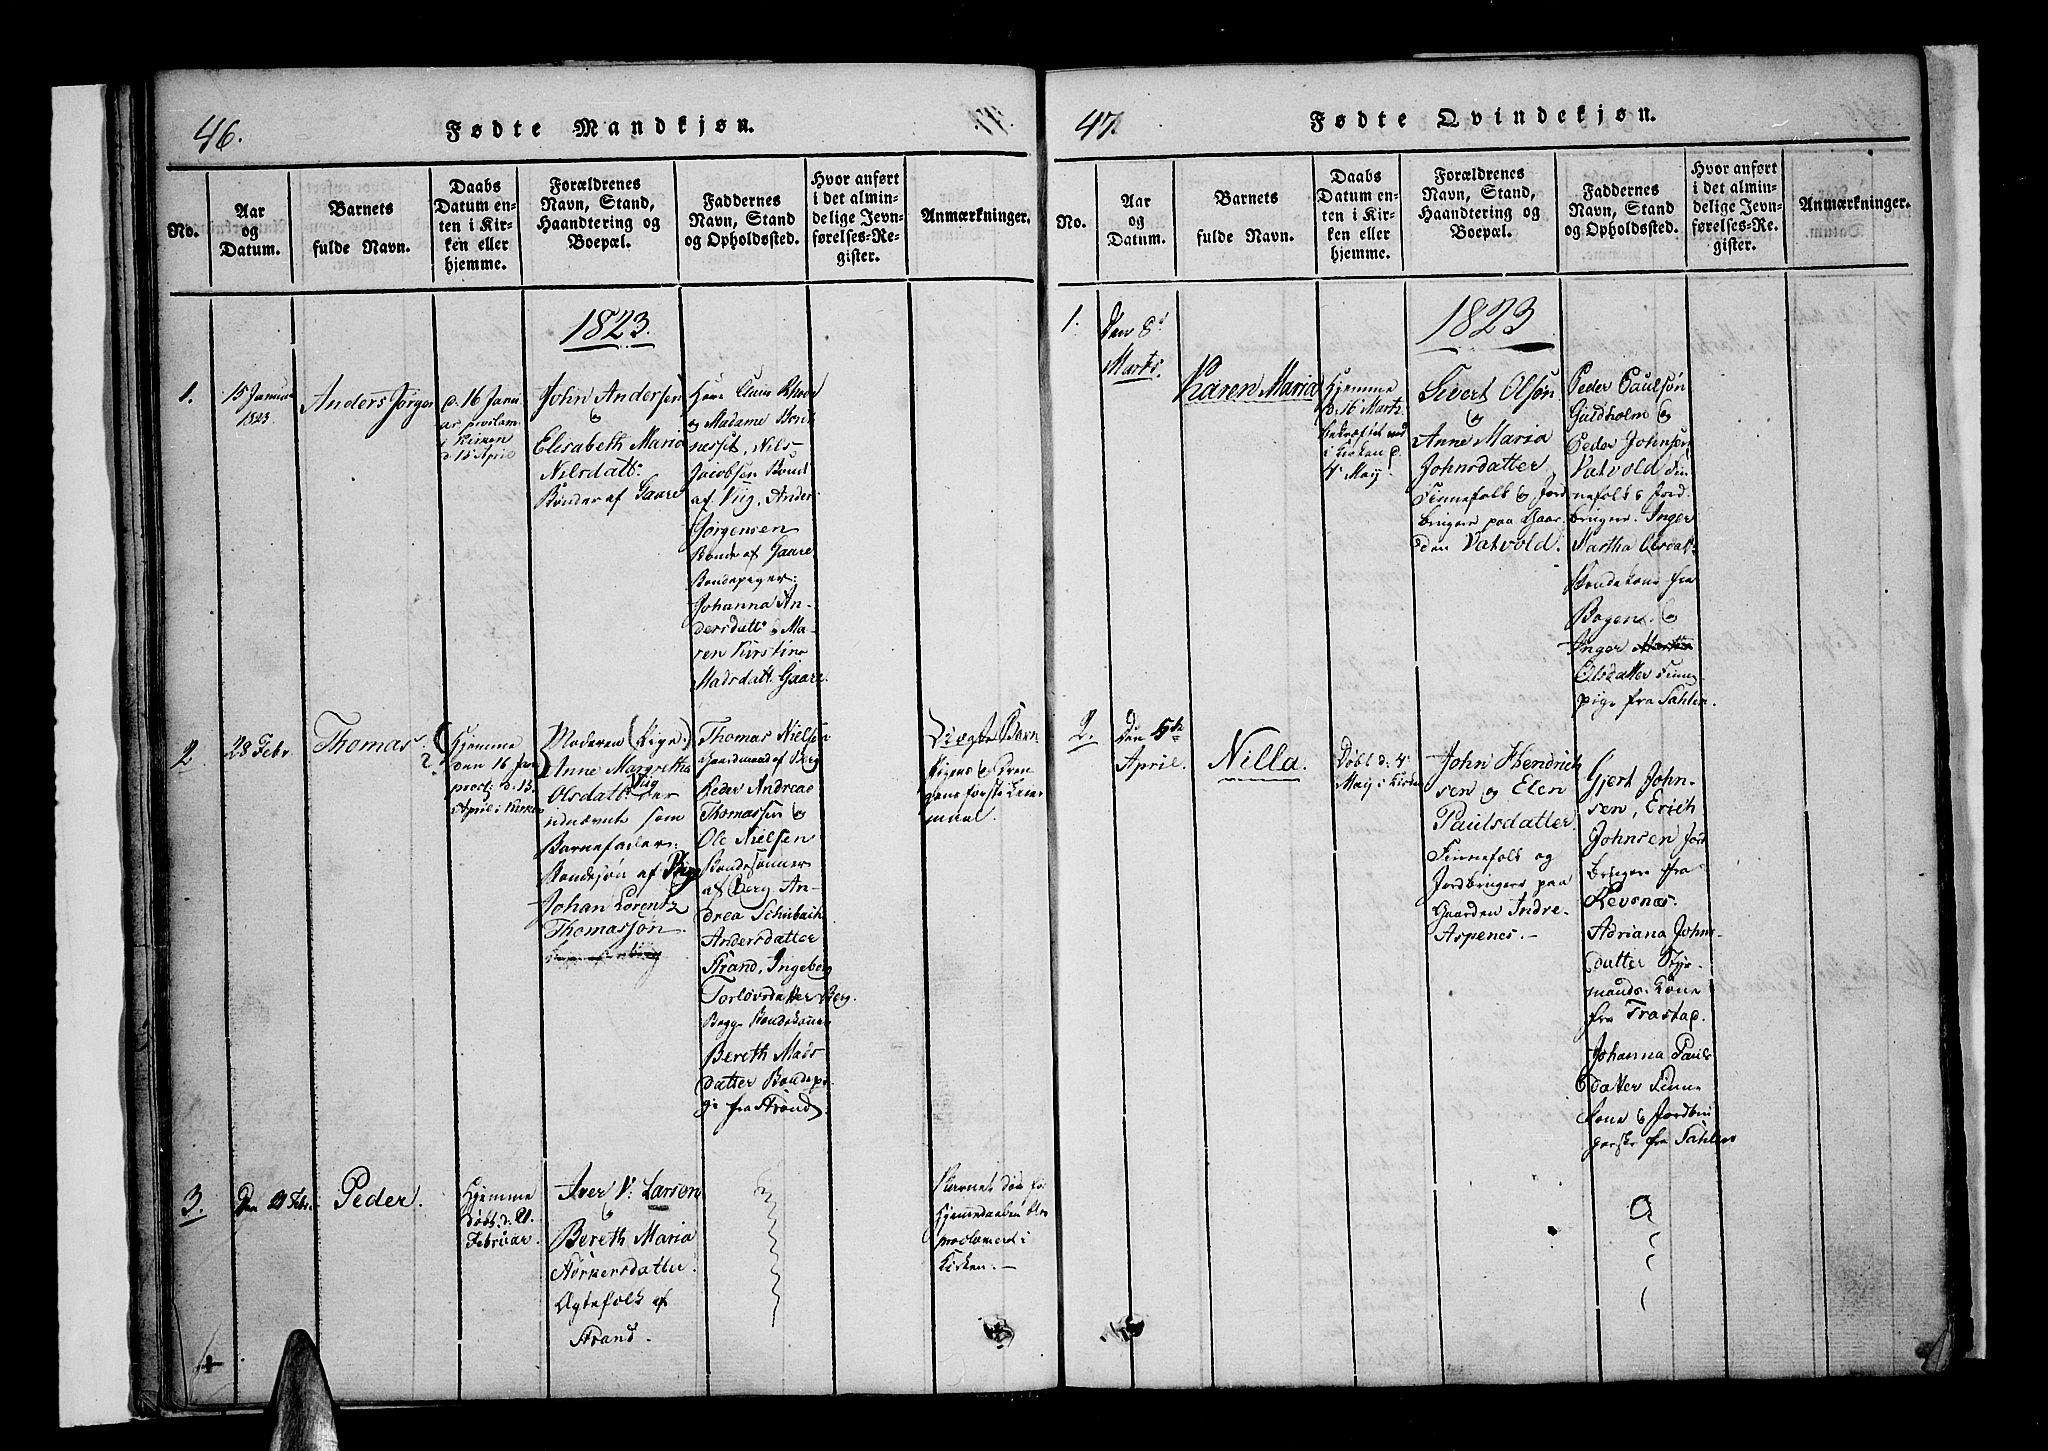 46.
Fødte Mandkjøn.
No.
Aar
og
Datum.
Barnets
fulde Navn.
Daabs
Datum en-
ten i Kir-
ken eller
hjemme.
Forældrenes
Navn, Stand,
Haandtering og
Boepæl.
Faddernes
Navn, Stand
og Opholdssted.
Hvor anført
i det almin-
delige Jevn-
førelses-Re-
gister.
Anmærkninger.
1823.
1.
15 Januar
1823
Anders Jørgen
d. 16 Janu
ar, proclam.
i Kirken
d. 15 April
John Andersen
&
Elisabeth Maria
Nilsdatt:
Bønder af Gaare
og Madame Bent
nessit, Nils
Jacobsen Bonde
af Viig, Anders
Jørgensen
Bonde af Gaare
Bondepiger:
Johanna An-
dersdatt: og Ma-
ren Kirstine
Madsdatt: Gaare.
2
28 Febr.
Thomas.
Hjemme
den 16 Jan
proct: d. 13
April i Kirken
Moderen (Pige)
Anne Margretha
Olsdatt: Viig der
udnævnte som
Barnefader:
Bondesøn af Berg
Johan Lorentz
Thomassøn.
Thomas Nielsen
Gaardmand af Berg
Peder Andreas
Thomassen &
Ole Nielsen
Bondesønner
af Berg An-
drea Schibach
Andersdatter
Strand, Ingeborg
Torlovsdatter Berg.
Begge Bondekoner
Bereth Mads
datter Bondepi
ge fra Strand.
Uægte Barn
Pigens & Dren
gens første Leier
maal.
3.
Den 21 Febr.
Peder.
Hjemme
døbt d. 21
Februar.
Iver N: Larsen
&
Bereth Maria
Størkersdatter.
Ægtefolk af
Strand.
Barnets død før
Hjemmedaaben blev
proclameret i
Kirken. -
47.
Fødte Qvindekjøn.
No.
Aar
og
Datum.
Barnets
fulde Navn.
Daabs
Datum en-
ten i Kir-
ken eller
hjemme.
Forældrenes
Navn, Stand,
Haandtering og
Boepæl.
Faddernes
Navn, Stand
og Opholdssted.
Hvor anført
i det almin-
delige Jevn-
førelses-Re-
gister.
Anmærkninger.
1823
1.
Den 8de
Marts.
Karen Maria
Hjemme
d. 16 Marts
bekræftet ved
i Kirken d.
4de May.
Sivert Olsøn
&
Anne Maria
Johnsdatter
Finnefolk & Jord
brugere paa Gaar
den Vatvold.
Peder Paulsøn
Guldholm &
Peder Johnsen
Vatvold Fin
nefolk & Jord
brugere. Inger
Martha Olsdat
Bondekone fra
Bogen &
Inger
Olsdatter Finne
pige fra Sahlen.
2.
Den 5te
April.
Nilla.
Døbt d. 4
May i Kirken
John Hendrich
sen og Elen
Paulsdatter.
Finnefolk og
Jordbrugere paa
Gaarden Indre-
Aspenes. -
Gjert John-
sen, Erich
Johnsen Jord
brugere fra
Revenæs.
Adriana Johns
datter Styr-
mands Kone
fra Trastad.
Johanna Pauls
datter Finne
kone & Jordbru
gerske fra Sahlen